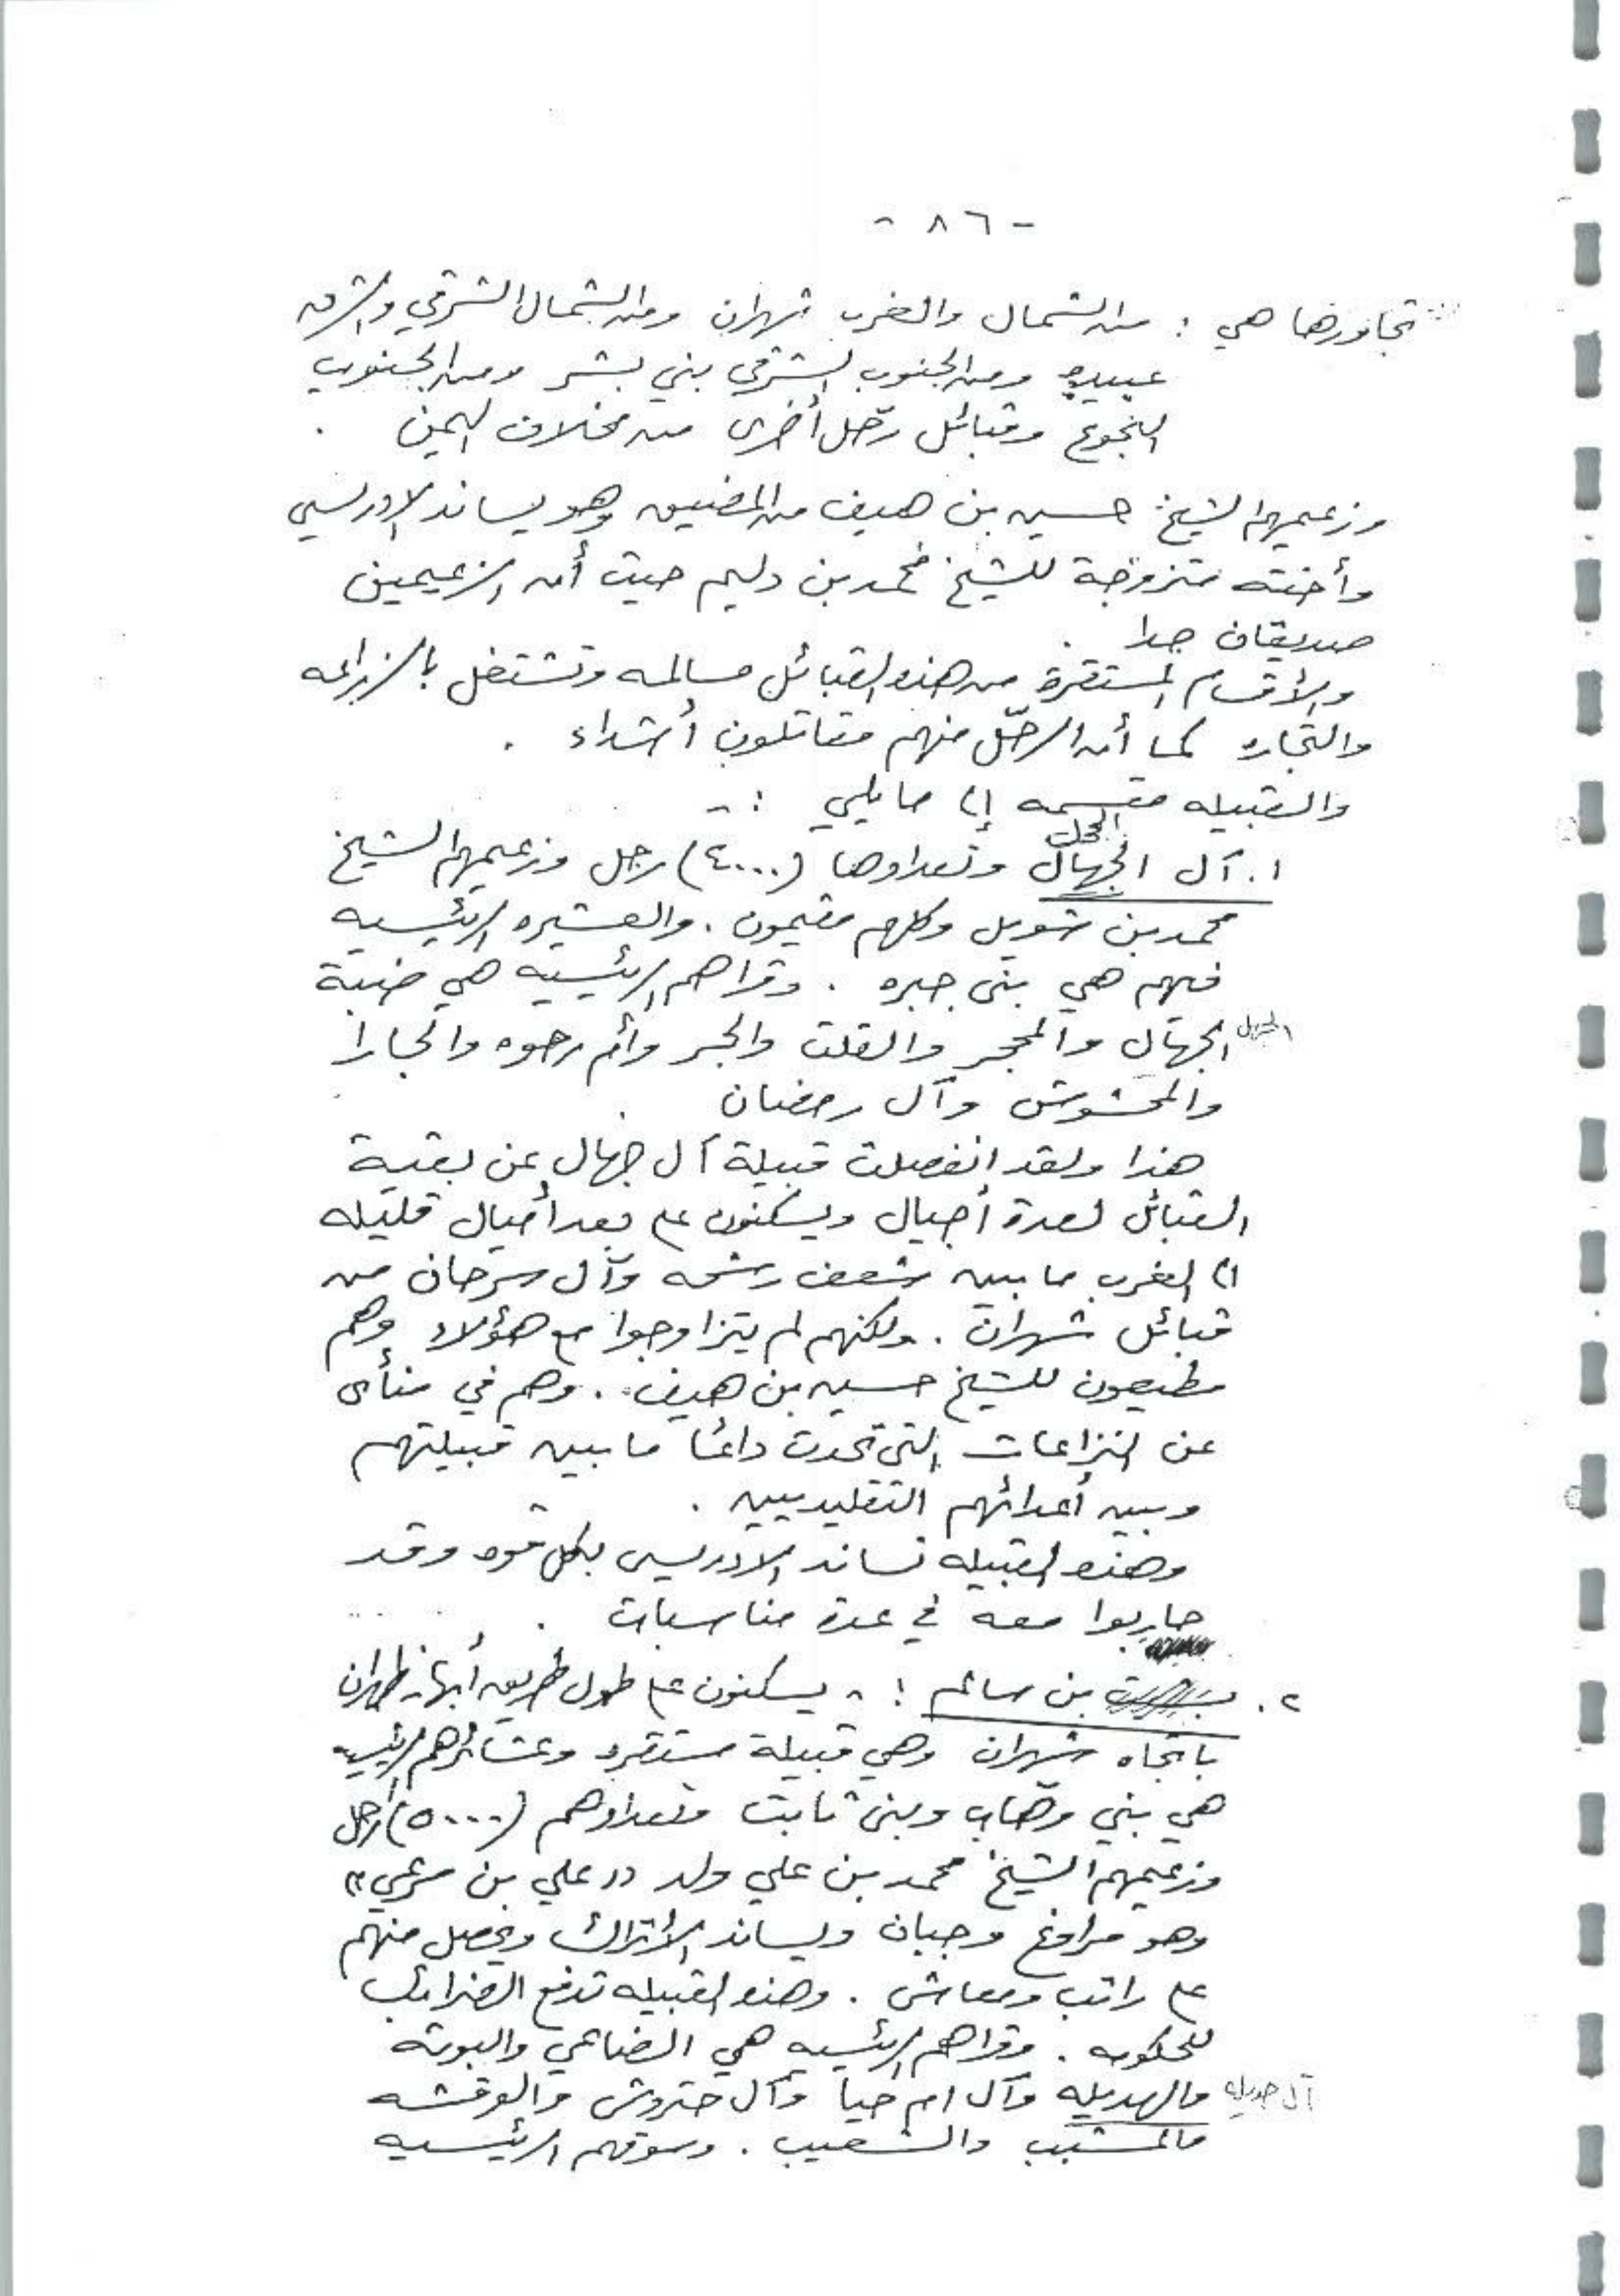 - ٨٦ -
تجاورها هي : من الشمال والغرب شهران ومن الشمال الشرقي والشرق
عبيده ومن الجنوب الشرقي بني بشر ومن الجنوب
النجوع وقبائل رحّل أخرى من مخلاف اليمن .
وزعيمهم الشيخ حسين بن هيف من المضيق وهو يساند الادريسي
وأخته متزوجة للشيخ محمد بن دليم حيث أن الزعيمين
صديقان جدا .
والأقسام المستقرة من هذه القبائل مسالمه وتشتغل بالزراعه
والتجاره كما أن الرحّل منهم مقاتلون أشداء .
والقبيله مقسمه إلى ما يلي :-
الجحل
١. آل الجهال وتعدادها (٤٠٠٠) رجل وزعيمهم الشيخ
محمد بن شويل وكلهم مقيمون . والعشيره الرئيسيه
فيهم هي بني جبره . وقراهم الرئيسيه هي ضبة
الجهال والمحجر والقلت والجر وأم رهوه والحبارا
والمحشوش وآل رمضان .
هذا ولقد انفصلت قبيلة آل جهال عن بقية
القبائل لعدة أجيال ويسكنون على بعد أميال قليله
الى الغرب ما بين شعف رشحه وآل سرحان من
قبائل شهران . ولكنهم لم يتزاوجوا مع هؤلاء وهم
مطيعون للشيخ حسين بن هيف . وهم في منأى
عن النزاعات التي تحدث دائما ما بين قبيلتهم
وبين أعدائهم التقليديين .
وهذه القبيله تساند الادريسي بكل قوه وقد
حاربوا معه في عدة مناسبات .
٢. بن سالم :- يسكنون على طول طريق أبها - ظهران
باتجاه شهران وهي قبيلة مستقره وعشائرهم الرئيسيه
هي بني وهّاب وبني ثابت وتعدادهم (٥٠٠٠) رجل
وزعيمهم الشيخ محمد بن علي ولد «علي بن مرعي»
وهو مراوغ وجبان ويساند الأتراك ويحصل منهم
على راتب ومعاش . وهذه القبيله تدفع الضرائب
للحكومه . وقراهم الرئيسيه هي الضاحي والبوته
والهديله وآل ام حيا وآل حتروش والوقشه آل هديله
والمشبب والشعيب . وسوقهم الرئيسيه